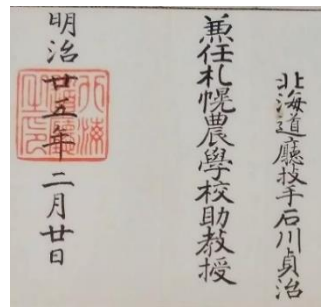 北海道廳技手石川貞治
兼任札幌農學校助教授
明治廿五年二月廿日